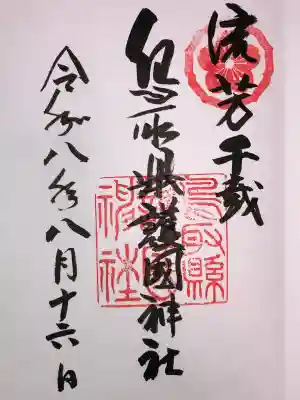 流芳千載
鳥取県護國神社
鳥取縣護國神社
令和八年八月十六日